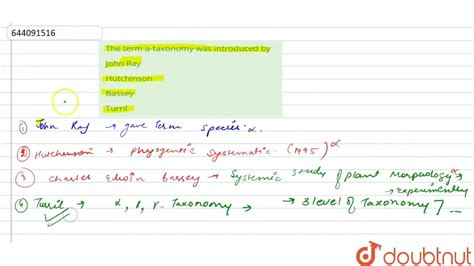 644091516
The term a-taxonomy was introduced by
John Ray
Hutchinson
Bassey
Turril
① John Ray → gave term species α.
② Hutchinson → phylogentic systematic. (1995) α
③ Charles Edwin Bassey → Systemic study of plant Morphology α → experimently
④ Turril → α, β, γ- Taxonomy → → 3 level of Taxonomy 7 ...
doubtnut